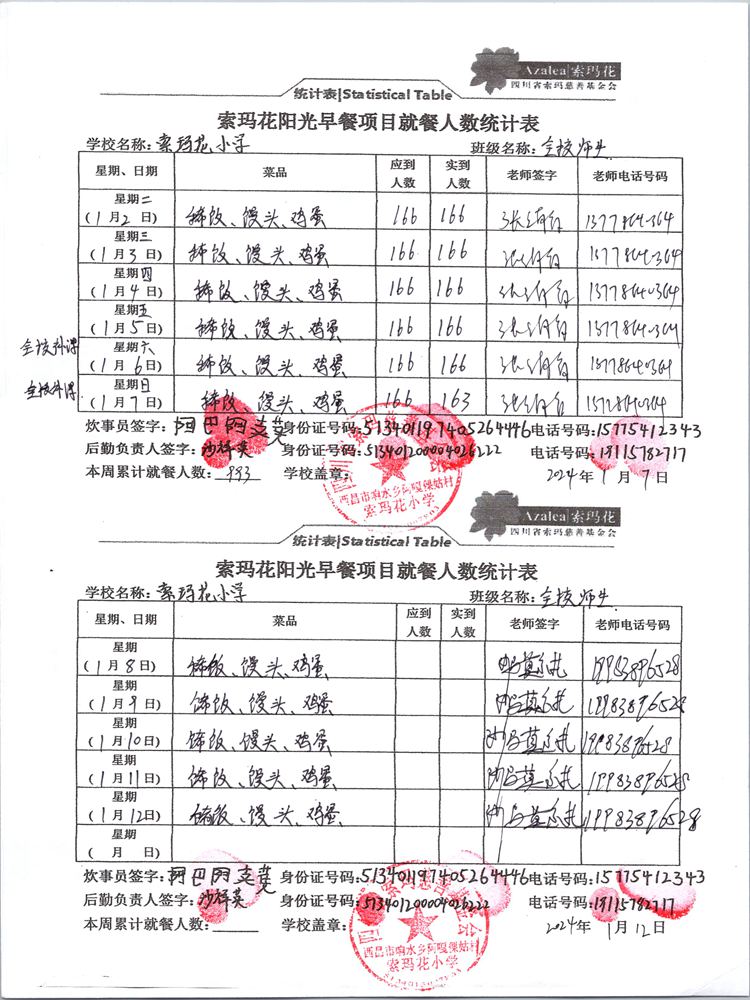 Azalea|索玛花
四川省索玛慈善基金会
统计表|Statistical Table
索玛花阳光早餐项目就餐人数统计表
学校名称：索玛花小学 班级名称：全校师生
星期、日期 菜品 应到人数 实到人数 老师签字 老师电话号码
星期二 (1月2日) 稀饭、馒头、鸡蛋 166 166
星期三 (1月3日) 稀饭、馒头、鸡蛋 166 166
星期四 (1月4日) 稀饭、馒头、鸡蛋 166 166
星期五 (1月5日) 稀饭、馒头、鸡蛋 166 166
全校补课 星期六 (1月6日) 稀饭、馒头、鸡蛋 166 166
全校补课 星期日 (1月7日) 稀饭、馒头、鸡蛋 166 163
炊事员签字： 身份证号码：513401197405264446 电话号码：15775412343
后勤负责人签字：沙祥英 身份证号码：513401200004026222 电话号码：18115782717
本周累计就餐人数：993 学校盖章： 2024年1月7日
西昌市响水乡阿嘎倮姑村
索玛花小学
Azalea|索玛花
四川省索玛慈善基金会
统计表|Statistical Table
索玛花阳光早餐项目就餐人数统计表
学校名称：索玛花小学 班级名称：全校师生
星期、日期 菜品 应到人数 实到人数 老师签字 老师电话号码
星期 (1月8日) 稀饭、馒头、鸡蛋 19983896528
星期 (1月9日) 稀饭、馒头、鸡蛋 19983896528
星期 (1月10日) 稀饭、馒头、鸡蛋 19983896528
星期 (1月11日) 稀饭、馒头、鸡蛋 19983896528
星期 (1月12日) 稀饭、馒头、鸡蛋 19983896528
星期 (月 日)
炊事员签字： 身份证号码：513401197405264446 电话号码：15775412343
后勤负责人签字：沙祥英 身份证号码：513401200004026222 电话号码：18115782717
本周累计就餐人数： 学校盖章： 2024年1月12日
西昌市响水乡阿嘎倮姑村
索玛花小学